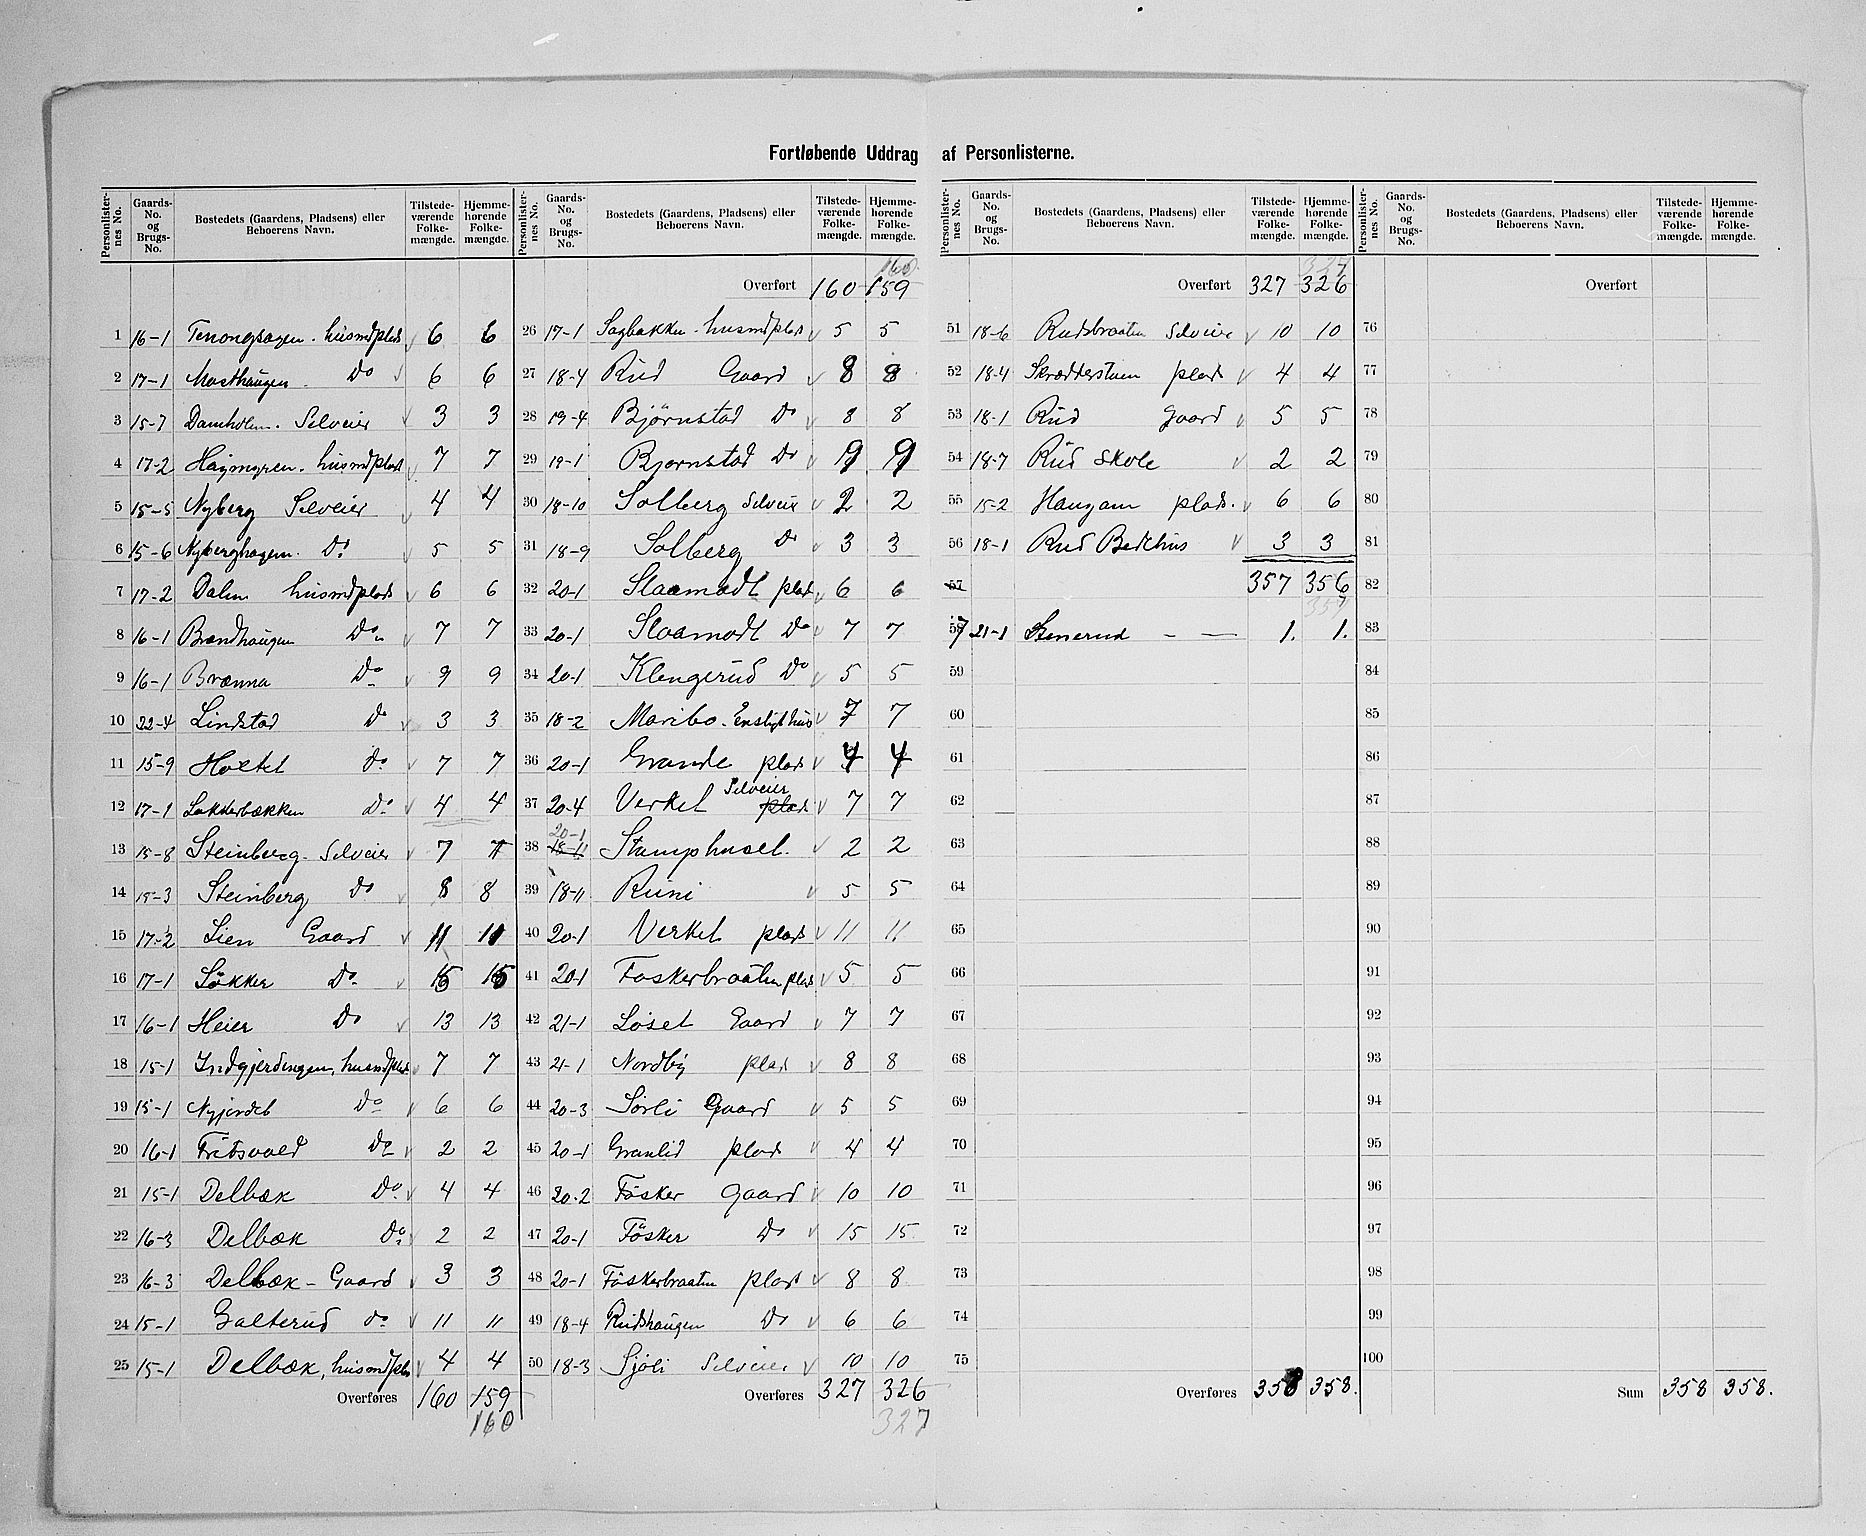 Fortløbende Uddrag af Personlisterne.
Personlisternes No. | Gaards-No. og Brugs-No. | Bostedets (Gaardens, Pladsens) eller Beboerens Navn. | Tilstedeværende Folkemængde. | Hjemmehørende Folkemængde.
1 16-1 husmdplads 6 6
2 17-1 Masthaugen Do 6 6
3 15-7 Damholm. Selveier 3 3
4 17-2 husmdplads 7 7
5 15-5 Nyberg Selveier 4 4
6 15-6 Nyberghagen. Do 5 5
7 17-2 Dalen husmdplads 6 6
8 16-1 Brændhaugen Do 7 7
9 16-1 Brænna Do 9 9
10 22-4 Lindstad Do 3 3
11 15-9 Hoktet Do 7 7
12 17-1 Løkkerbækken Do 4 4
13 15-8 Steinberg. Selveier 7 7
14 15-3 Steinberg Do 8 8
15 17-2 Lien Gaard 11 11
16 17-1 Løkker Do 15 15
17 16-1 Heier Do 13 13
18 15-1 Indgjerdingen, husmdplads 7 7
19 15-1 Nyjordet Do 6 6
20 16-1 Fritsvold Do 2 2
21 15-1 Delbæk Do 4 4
22 16-3 Delbæk Do 2 2
23 16-3 Delbæk - Gaard 3 3
24 15-1 Galterud do 11 11
25 15-1 Delbæk, husmdpls 4 4
Overføres 160 159
160
160
Overført 160 159
26 17-1 Sagbakken. husmdplads 5 5
27 18-4 Rud Gaard 8 8
28 19-4 Bjørnstad Do 8 8
29 19-1 Bjornstad Do 9 9
30 18-10 Solberg Selveier 2 2
31 18-9 Solberg Do 3 3
32 20-1 Slaamodt plads 6 6
33 20-1 Slaamodt Do 7 7
34 20-1 Klengerud Do 5 5
35 18-2 Maribo. Enslyt hus 7 7
36 20-1 Grande plads 4 4
37 20-4 Verket plads Selveier 7 7
38 18-11 20-1 Stamphuset. 2 2
39 18-11 Runi 5 5
40 20-1 Verket plads 11 11
41 20-1 Foskerbraaten plads 5 5
42 21-1 Løset Gaard 7 7
43 21-1 Nordby plads 8 8
44 20-3 Sørli Gaard 5 5
45 20-1 Granlid plads 4 4
46 20-2 Føsker Gaard 10 10
47 20-1 Føsker Do 15 15
48 20-1 Føskerbraaten plads 8 8
49 18-4 Rudshaugen Do 6 6
50 18-3 Sjøli Selveier 10 10
Overføres 327 326
327
327
Overført 327 326
51 18-6 Rudsbraaten Selveier 10 10
52 18-4 Skrædderstuen plads 4 4
53 18-1 Rud Gaard 5 5
54 18-7 Rud Skole 2 2
55 15-2 plads. 6 6
56 18-1 Rud Bedehus 3 3
57 357 356
357
58 7 21-1 Stenerud - — 1. 1.
59
60
61
62
63
64
65
66
67
68
69
70
71
72
73
74
75
Overføres 358 358.
Overført
76
77
78
79
80
81
82
83
84
85
86
87
88
89
90
91
92
93
94
95
96
97
98
99
100
Sum 358 358.